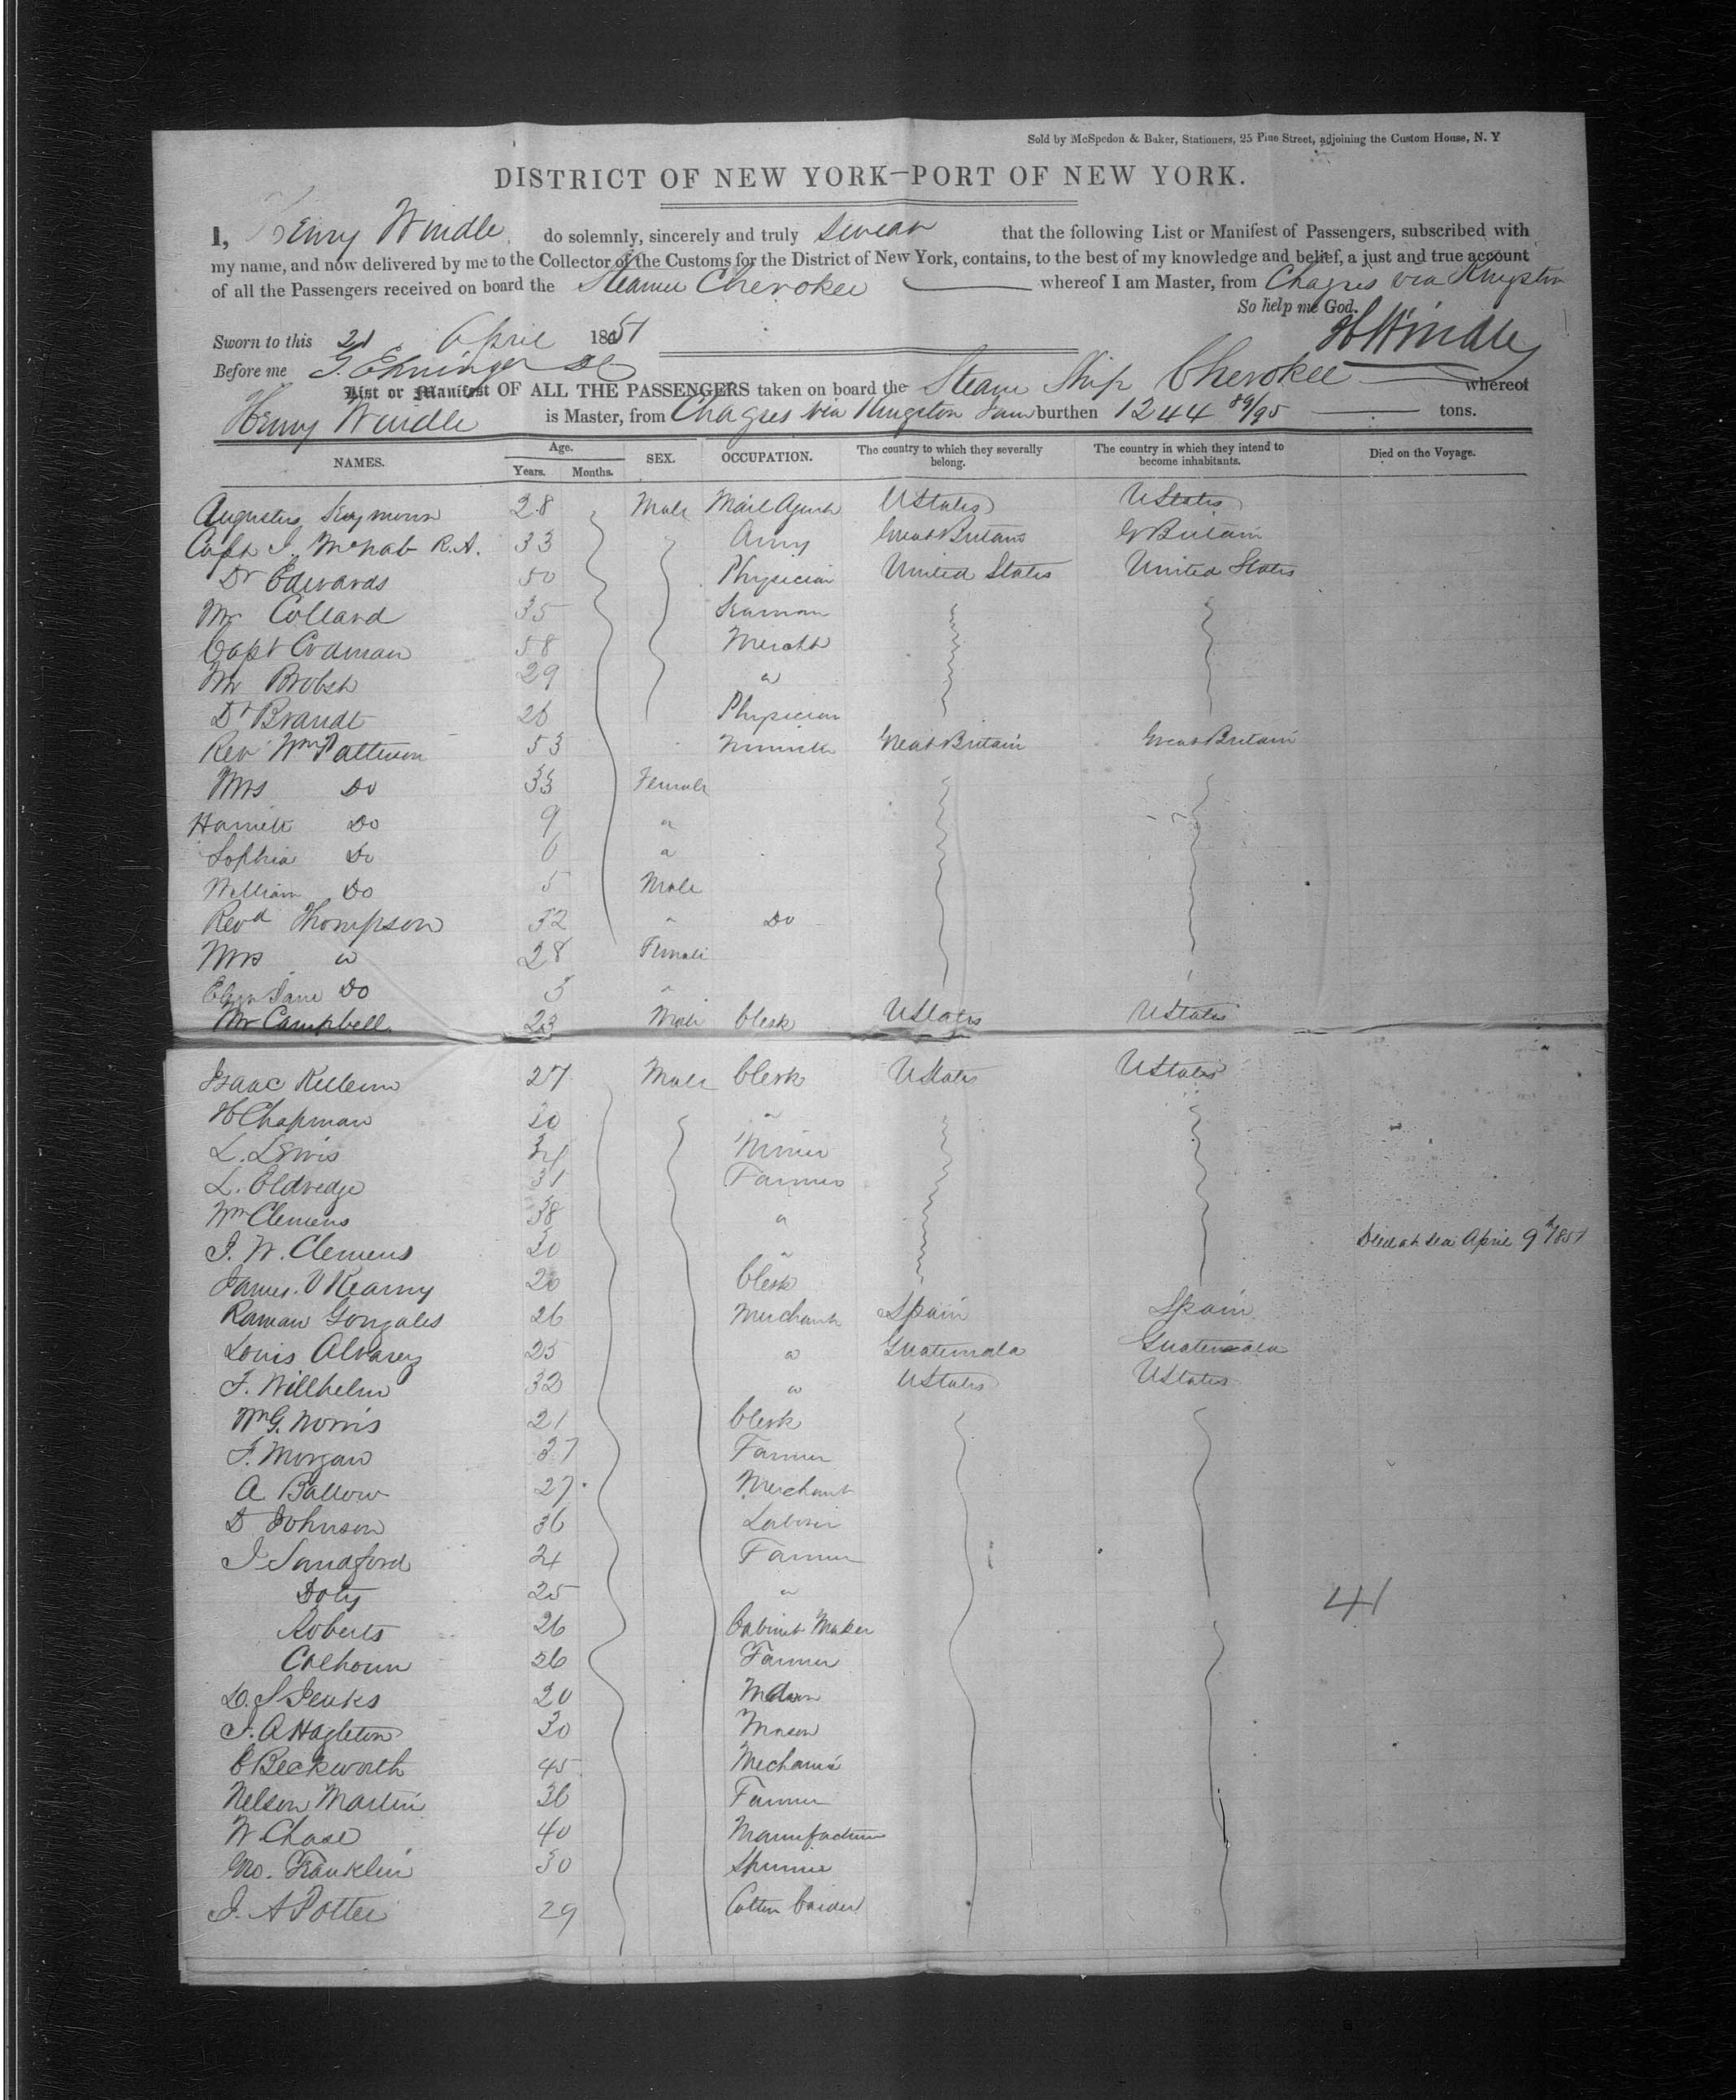 Sold by McSpedon & Baker, Stationers, 25 Pine Street, adjoining the Custom House, N. Y
DISTRICT OF NEW YORK—PORT OF NEW YORK.
I, Henry Windle do solemnly, sincerely and truly Swear that the following List or Manifest of Passengers, subscribed with
my name, and now delivered by me to the Collector of the Customs for the District of New York, contains, to the best of my knowledge and belief, a just and true account
of all the Passengers received on board the Steamer Cherokee whereof I am Master, from Chagres via Kingston
So help me God.
Sworn to this 21 April 1851 H Windle
Before me G. Ehninger
List or Manifest OF ALL THE PASSENGERS taken on board the Steam Ship Cherokee whereof
Henry Windle is Master, from Chagres via Kingston Jam burthen 1244 89/95 tons.
NAMES. Age. Years. Months. SEX. OCCUPATION. The country to which they severally belong. The country in which they intend to become inhabitants. Died on the Voyage.
Augustus Seymour 28 Male Mail Agent UStates UStates
Capt J. McNab R.A. 33 Army Great Britain G Britain
Dr Edwards 50 Physician United States United States
Mr Collard 35 Seaman
Capt Codman 58 Mercht
Mr Brobst 29 "
Dr Brandt 26 Physician
Rev Wm Pattison 53 Minister Great Britain Great Britain
Mrs Do 33 Female
Harriett Do 9 "
Sophia Do 6 "
William Do 5 Male
Revd Thompson 32 " Do
Mrs " 28 Female
Eliza Jane Do 3 "
Mr Campbell. 23 Male Clerk UStates UStates
Isaac 27 Male Clerk UStates UStates
H Chapman 20 "
L. Lewis Miner
L. Eldredge 31 Farmer
Wm Clemens 38 "
J. W. Clemens 30 " Died at Sea April 9th 1851
James. V Kearny 20 Clerk
Raman Gonzales 26 Merchant Spain Spain
Louis Alvarez 25 " Guatemala Guatemala
F. Willhelm 32 " UStates UStates
Wm G. Norris 21 Clerk
F. Morgan 37 Farmer
A Ballow 27 Merchant
D Johnson 36 Laborer
J Sandford 24 Farmer
Doty 25 " 41
Roberts 26 Cabinet Maker
Calhoun 26 Farmer
D. S Jenks 20 Mason
J. A Hazleton 30 Mason
C Beckworth 45 Mechanic
Nelson Martin 36 Farmer
W Chase 40 Manufacturer
Jno. Franklin 30 Spinner
J. A Potter 29 Cotten Carder